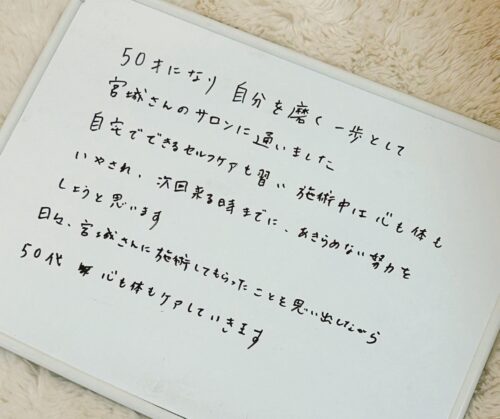 50才になり 自分を磨く一歩として
宮城さんのサロンに通いました
自宅でできるセルフケアも習い 施術中は心も体も
いやされ、次回来る時までに、あきらめない努力を
しようと思います
日々、宮城さんに施術してもらったことを思い出しながら
50代 心も体もケアしていきます